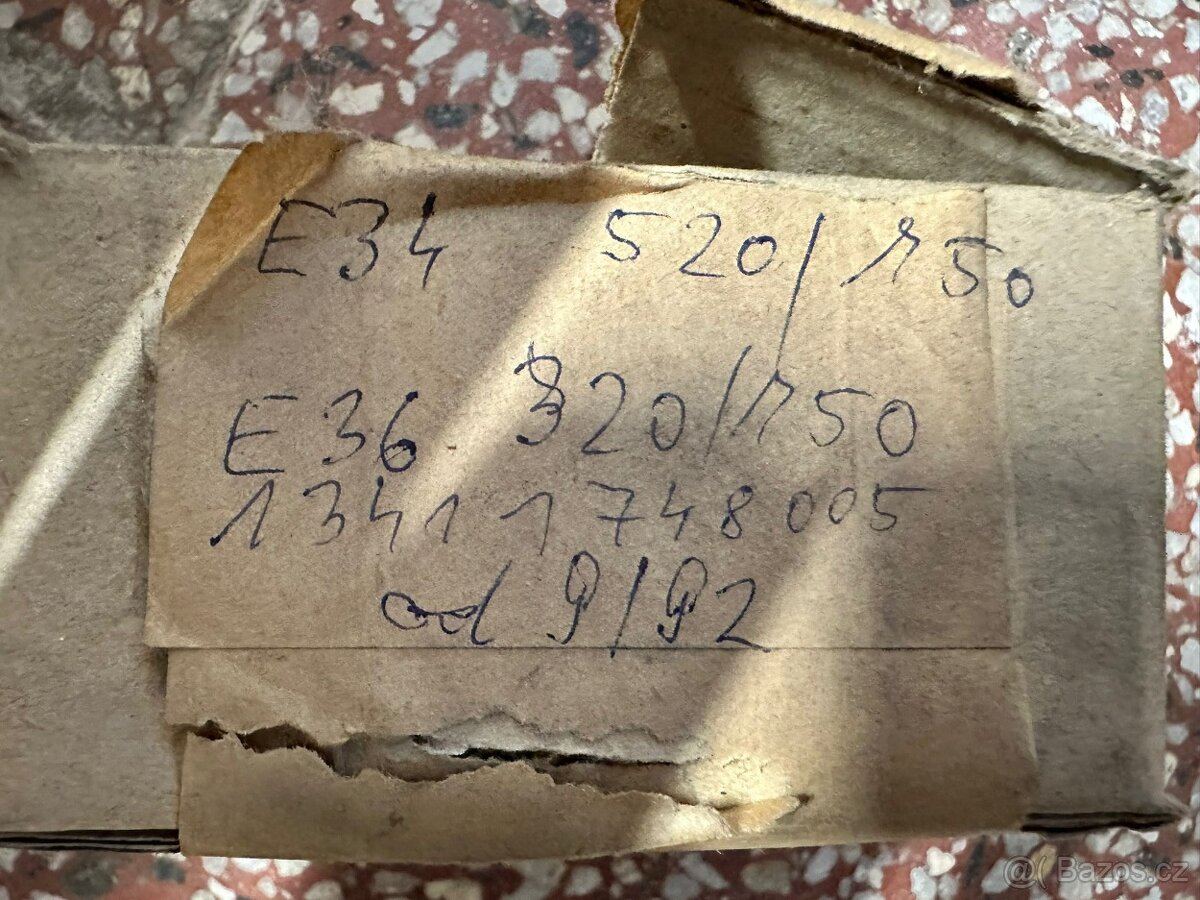 E34 520/150
E36 320/150
13411748005
od 9/92
@( Bazos.cz